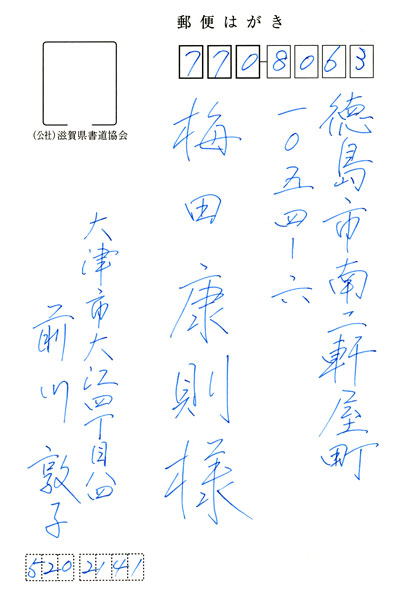 郵便はがき
770-8063
徳島市南二軒屋町
一〇五四ー六
梅田康則様
(公社)滋賀県書道協会
大津市大江四丁目八ー四
前川敦子
520 2141